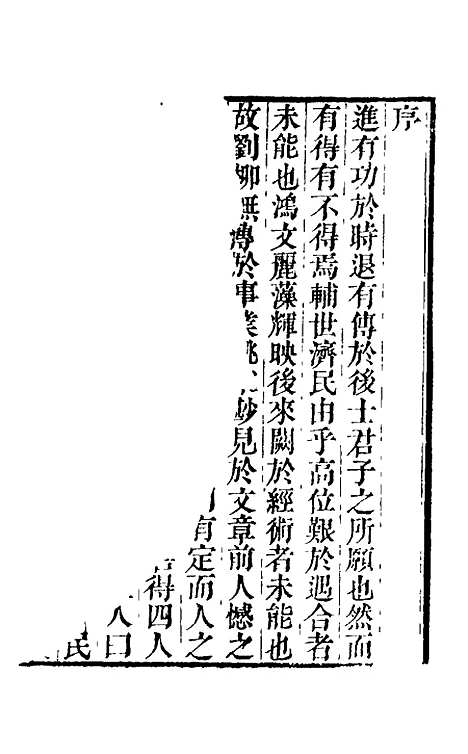 序
進有功於時退有傳於後士君子之所願也然而
有得有不得焉輔世濟民由乎高位艱於遇合者
未能也鴻文麗藻輝映後來闕於經術者未能也
故劉柳無傳於事業姚 尠見於文章前人憾之
有定而人之
得四人
人曰
民